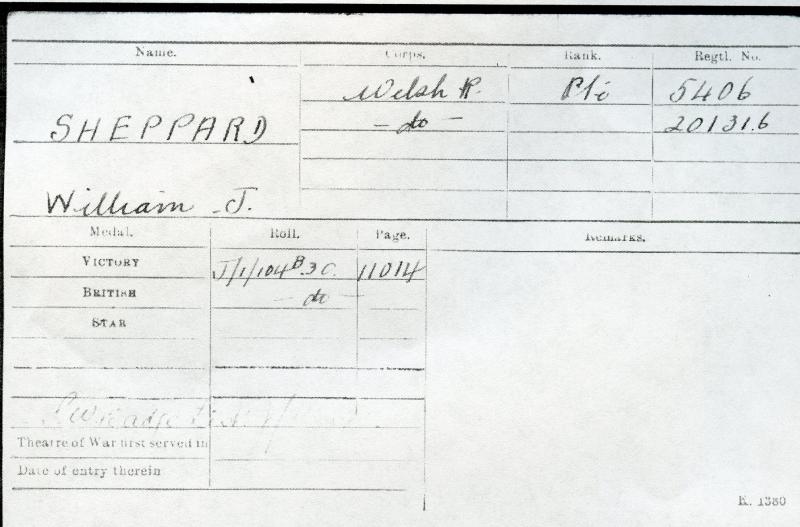 Name. Corps. Rank. Regtl. No.
Welsh R. Pte 5406
SHEPPARD - do - 201316
William J.
Medal. Roll. Page. Remarks.
VICTORY J/1/104 B.3 C. 11014
BRITISH - do -
STAR
Theatre of War first served in
Date of entry therein
K. 1380